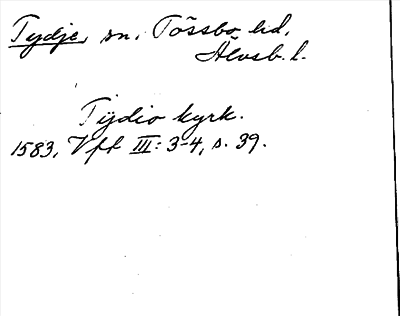 Tydje, sn, Tössbo hd,
Älvsb. l.
Tÿdio kyrk.
1583, Vfl III: 3-4, s. 39.